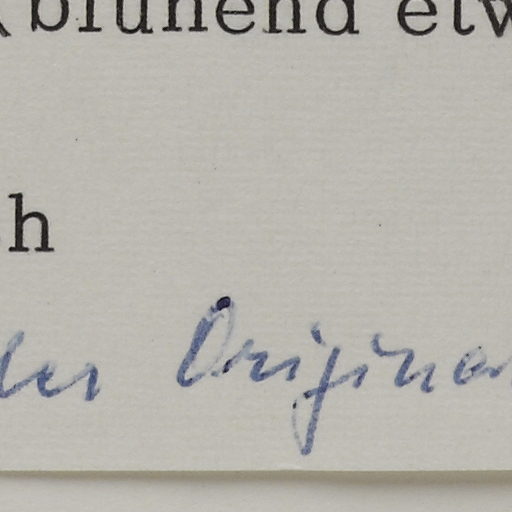 (blühend etw
h
der Origina